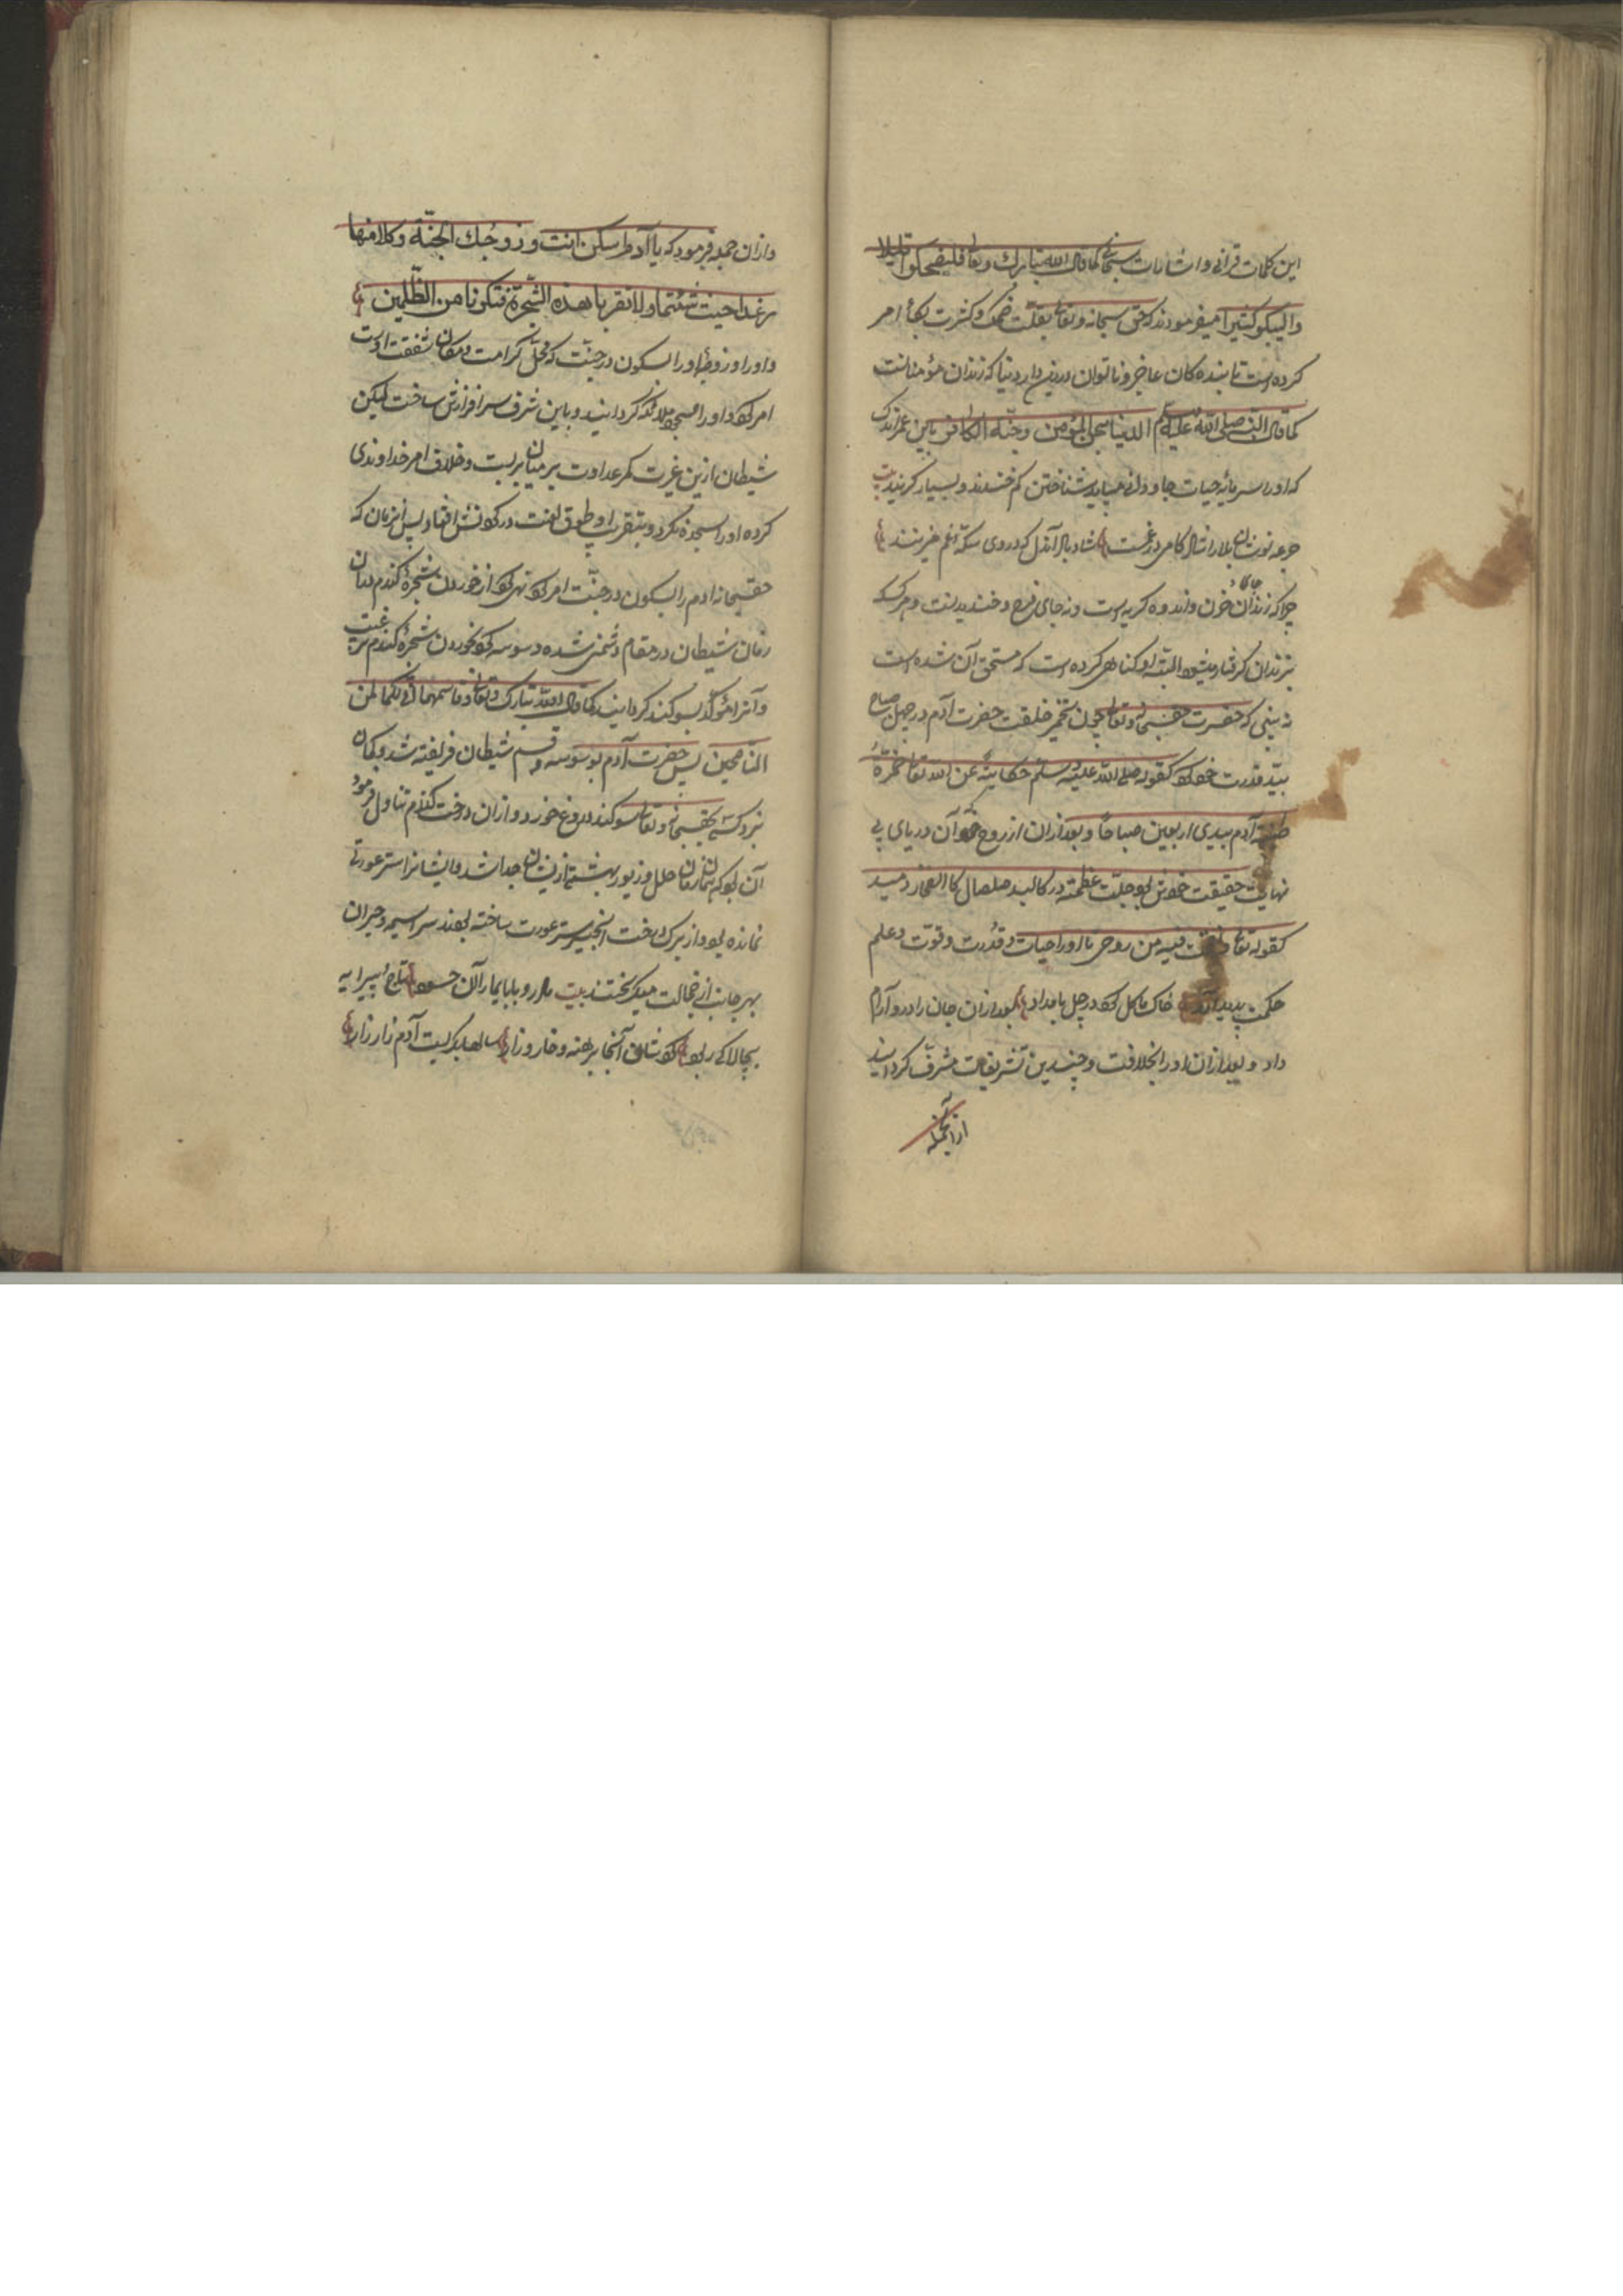 این کلمات قرآنی و اشارات سبحانی کما قال الله تبارک و تعالی فلیضحکوا قلیلا
والیبکو کثیرا میفرمودند که حق سبحانه و تعالی بقلّت ضحک و کثرت بکأ امر
کرده است تا بنده کان عاجز و ناتوان درین دار دنیا که زندان مؤمنانست
کما قال النبی صلی الله علیه وسلم الدنیا سجن المؤمن و جنّة الکافر باین عمر اندک
که اورا سرمایه حیات جاودانی میباید شناختن کم خندند و بسیار گریند بیت
جرعه نوشان بلا را شاد کامی در غمست شاد باد آندل که در وی سکه غم میزنند
چرا که زندان جای خون و اندوه و گریه است و نه جای فرح و خندیدنست و هر که
بزندان گرفتار میشود البته او گناهی کرده است که مستحق آن شده است
نه بینی که حضرت حقسبحانه و تعالی چون تخمیر خلقت حضرت آدم در چهل صباح
بید قدرت خود کرد کقوله صلی الله علیه وسلم حکایتة عن الله تعالی خمّرة
طینة آدم بیدی اربعین صباحًا و بعد ازان از روح خود آن دریای بی
نهایت حقیقت خویش بود جلّت عظمته در کالبد صلصال کالفخار دمید
کقوله تعالی نفخت فیه من روحی تا اورا حیات و قدرت و قوّت و علم
حکمت پدید آمد خاک ما گل کرد در چل بامداد بعد ازان جان را درو آرام
داد و بعد ازان اورا بخلافت و چندین تشریفات مشرّف گردانید
ازانجمله
وازان جمله فرمود که یا آدم اسکن انت و زوجك الجنّة وکلا منها
رغدا حیث شئتما ولا تقربا هذه الشّجرة فتکونا من الظّلمین
و اورا و زوجهٔ اورا بسکون در جنّت که محلّ کرامت و مکان شفقت اوست
امر کرد و اورا مسجود ملائکه گردانید و باین شرف سرافرازش ساخت لیکن
شیطان ازین غیرت کمر عداوت بر میان بربست و خلاف امر خداوندی
کرده اورا سجده نکرد و بتقریب او طوق لعنت در گردنش افتاد پس انزمان که
حقسبحانه ادم را بسکون در جنّت امر کرد و نهی کرد از خوردن شجرهٔ گندم بدان
زمان شیطان در مقام دشمنی شده وسوسه کرد بخوردن شجرهٔ گندم ترغیب
و آنرا مؤکد بسوکند گردانید کما قال الله تبارک و تعالی وقاسمهما انّی لکما لمن
النّاصحین پس حضرت آدم بوسوسه و قسم شیطان فریفته شد و بکمان
نبرد کسی بحقسبحانه و تعالی سوکند دروغ خورد و ازان درخت گندم تناول فرمود
آن بود که همان زمان حلل و زیور بهشتی ازیشان جدا شد و ایشانرا ستر عورتی
نمانده بود و از برگ درخت انجیر ستر عورت ساخته بودند سراسیمه و حیران
بهر جانب از خجالت میگریختند بیت مادر و بابای ما را آن حسود تاج و پیرایه
بچالاکی ربود کرد شان آنجا برهنه و خار و زار سالها بگریست آدم زار زار